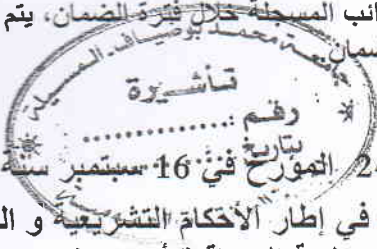 ائب المسجلة خلال فترة الضمان، يتم
سمان
جامعة محمد بوضياف المسيلة
تأشيرة
رقم :..............
بتاريخ
2 المؤرخ في 16 سبتمبر سنة
في إطار الأحكام التشريعية و ال